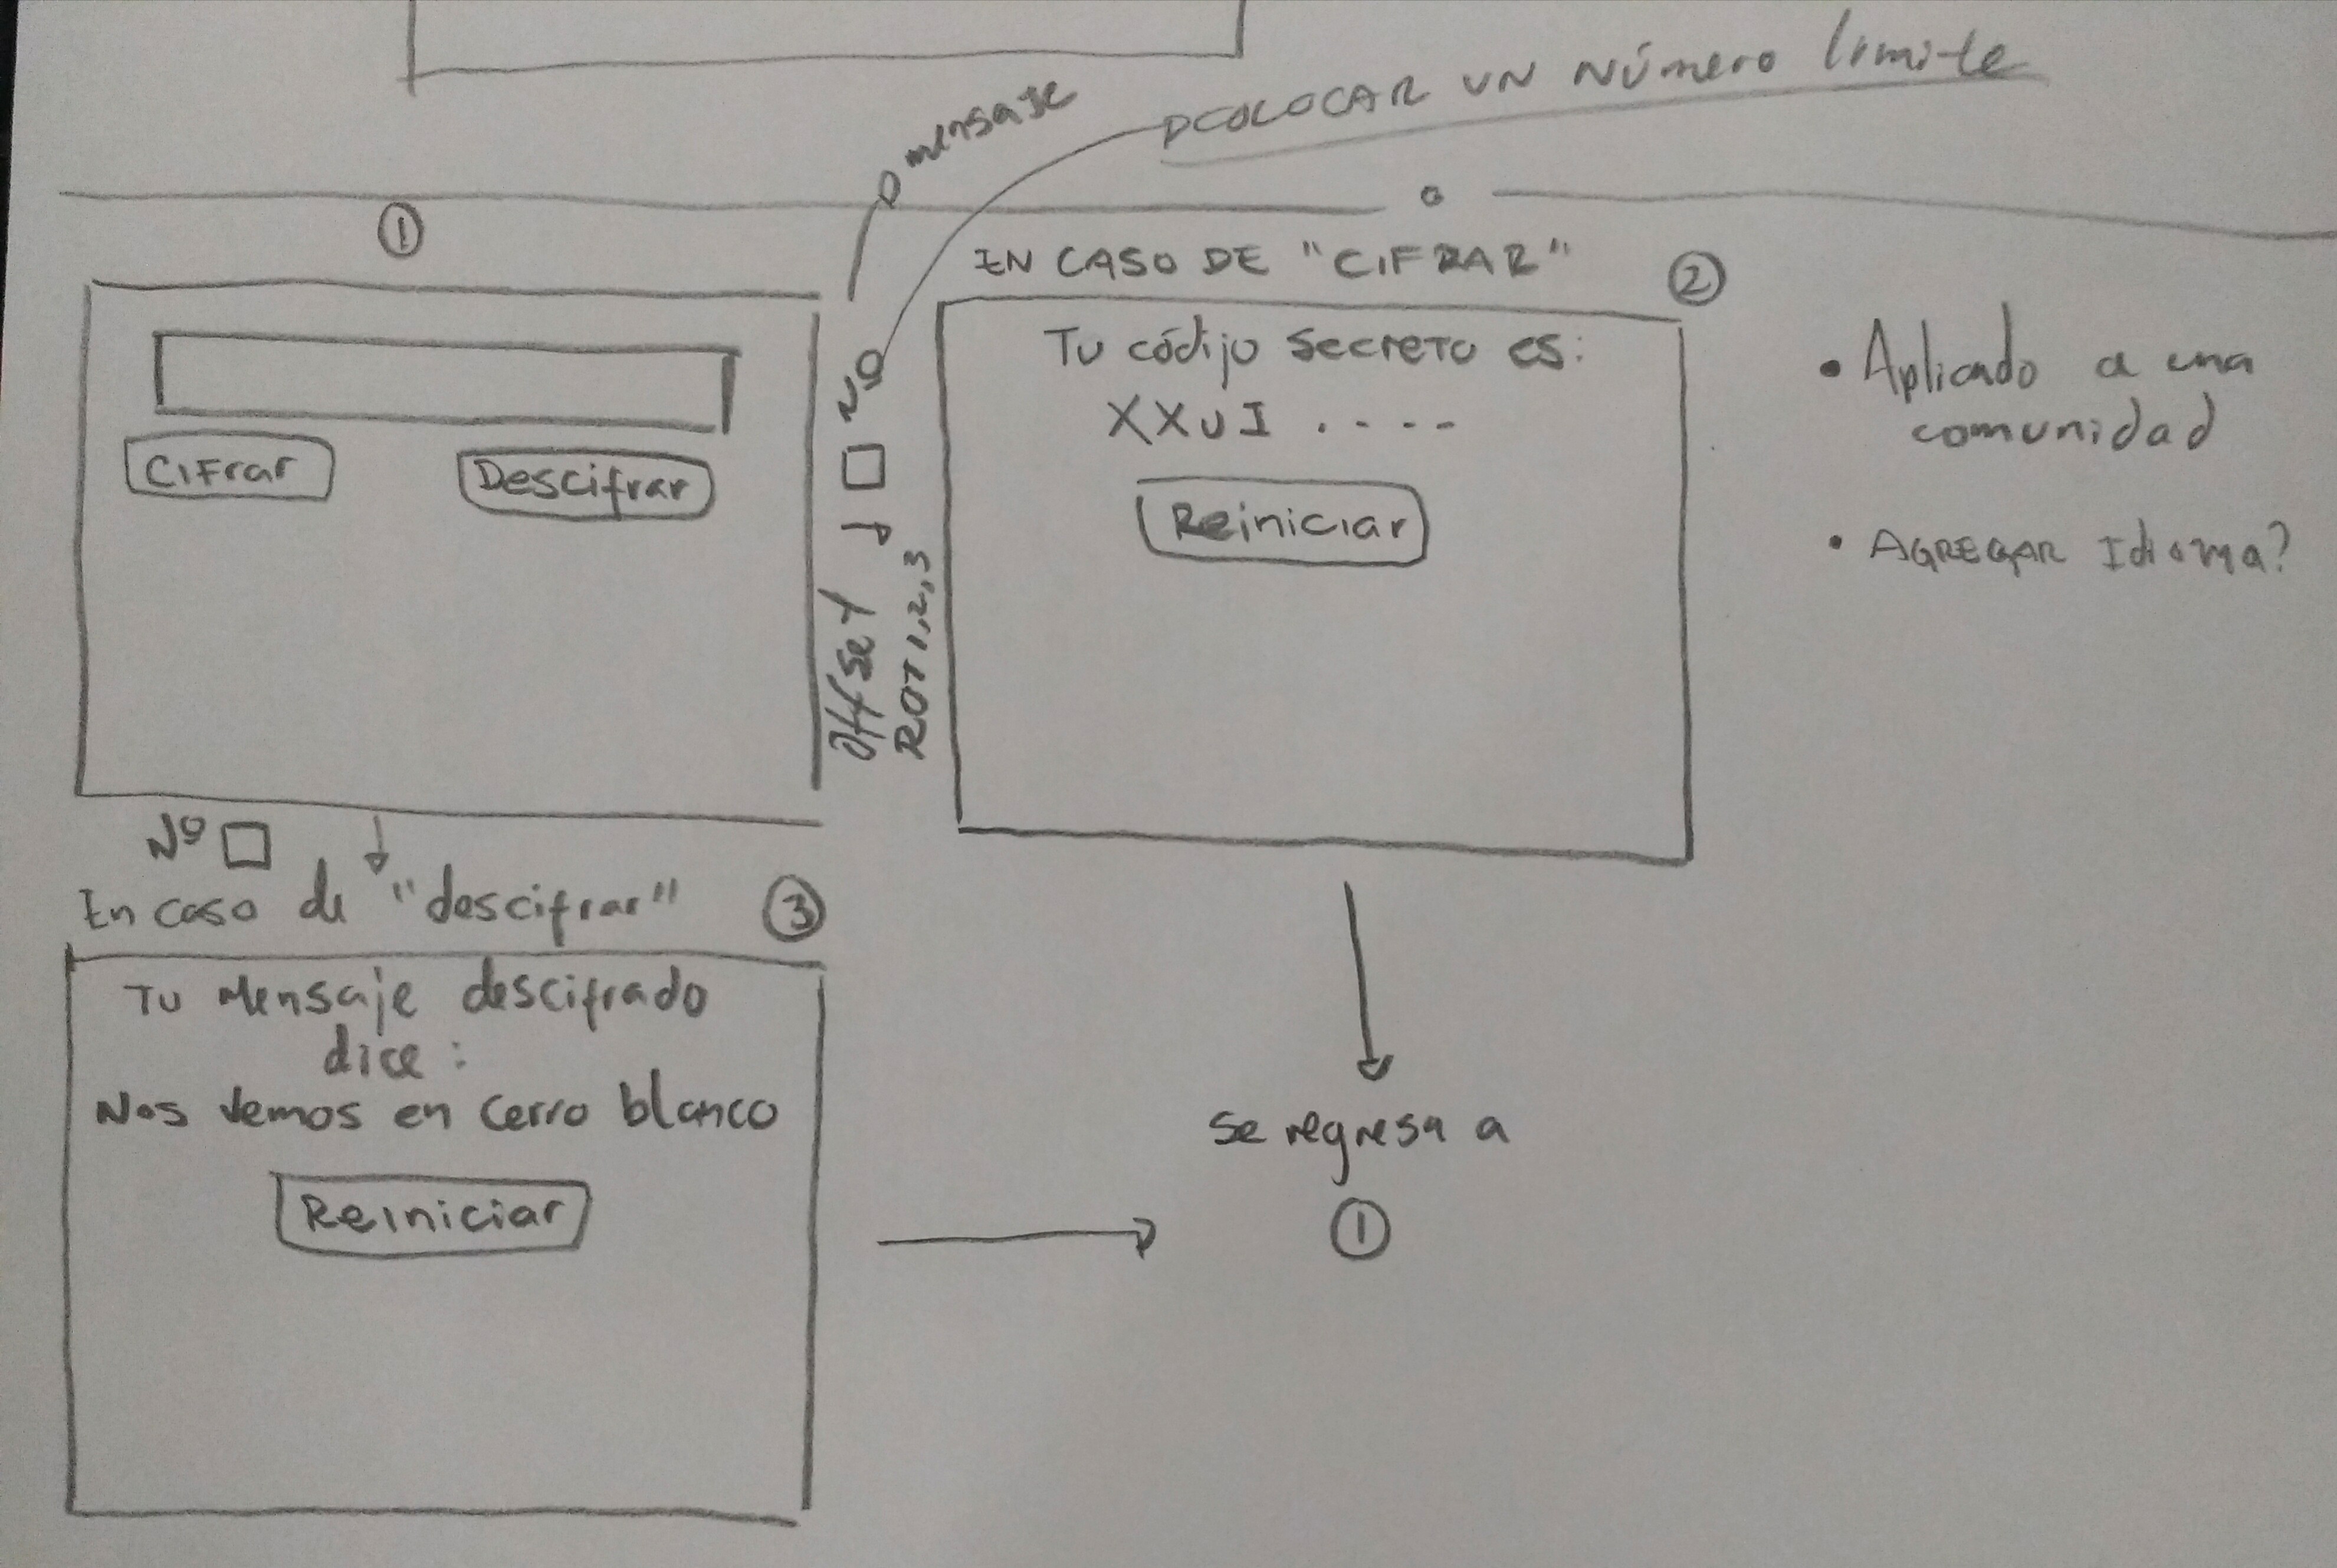 mensaje
COLOCAR UN NÚMero límite
①
Cifrar
Descifrar
Nº
offset
ROT 1,2,3
EN CASO DE "CIFRAR"
②
Tu códijo secreto es:
XXUI . . . .
Reiniciar
• Aplicado a una
comunidad
• AGREGAR Idioma?
Nº
En caso de "descifrar"
③
Tu Mensaje descifrado
dice:
Nos vemos en cerro blanco
Reiniciar
se regresa a
①